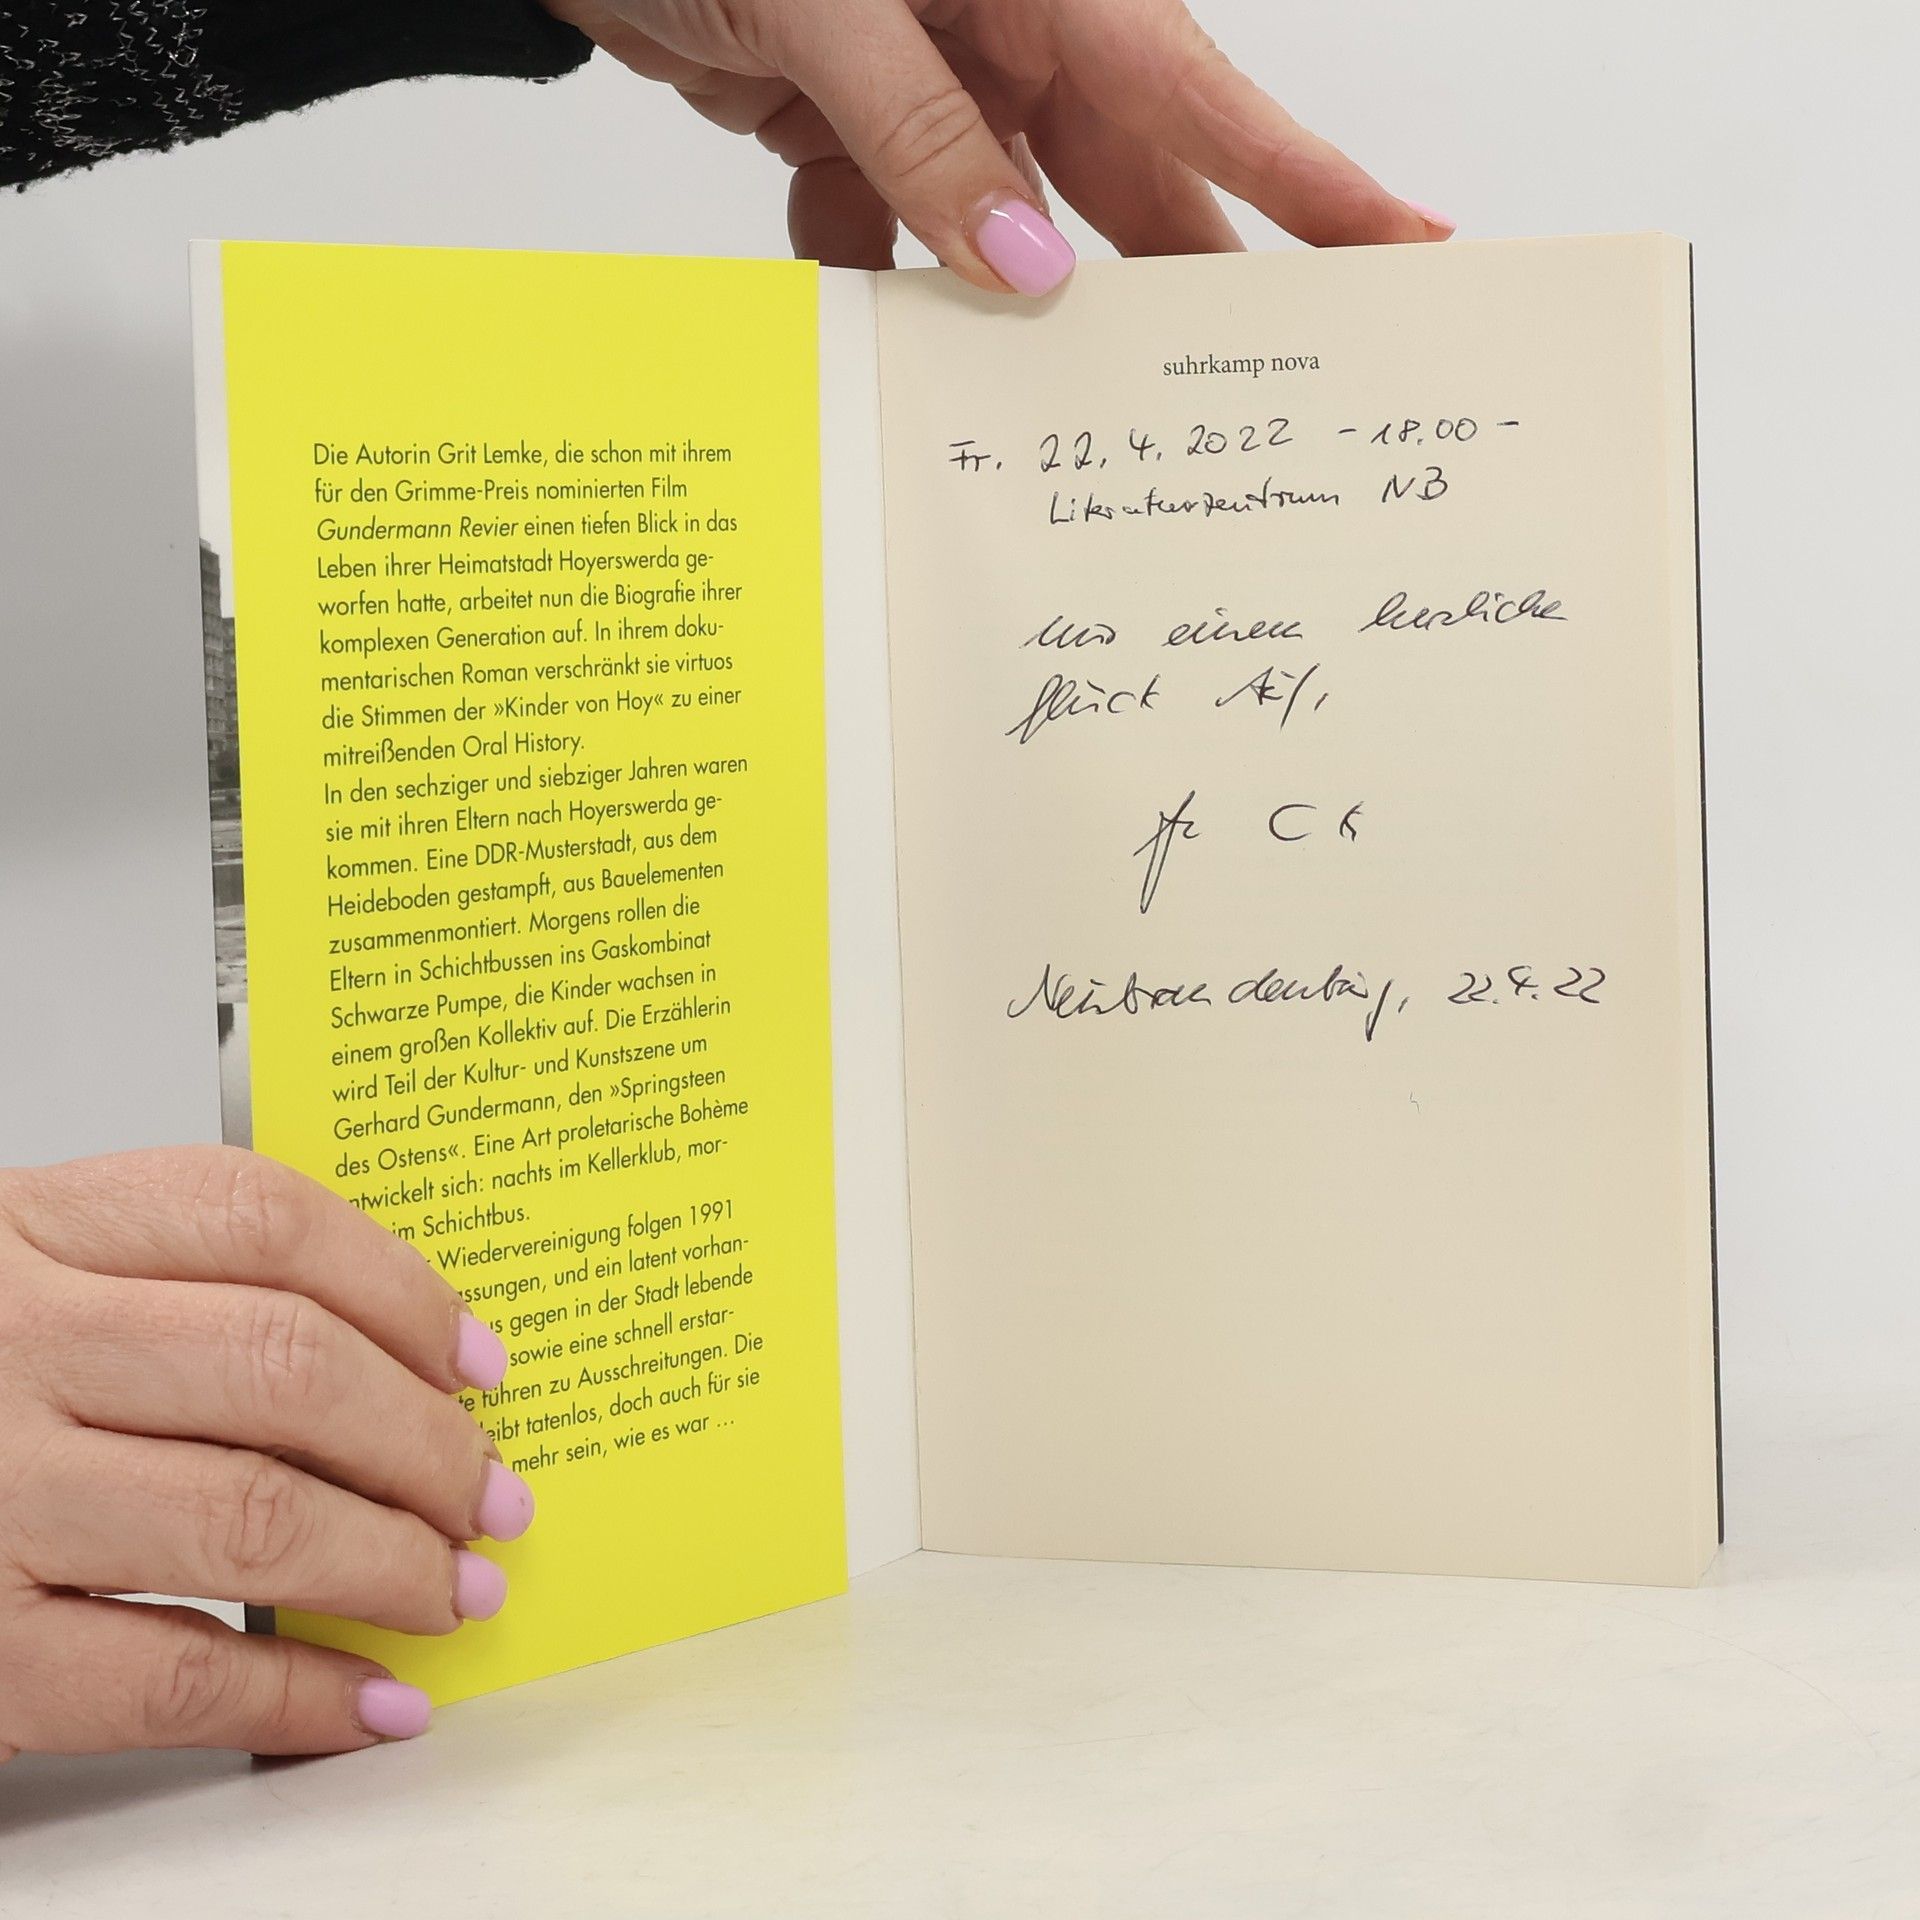 Die Autorin Grit Lemke, die schon mit ihrem
für den Grimme-Preis nominierten Film
Gundermann Revier einen tiefen Blick in das
Leben ihrer Heimatstadt Hoyerswerda ge-
worfen hatte, arbeitet nun die Biografie ihrer
komplexen Generation auf. In ihrem doku-
mentarischen Roman verschränkt sie virtuos
die Stimmen der »Kinder von Hoy« zu einer
mitreißenden Oral History.
In den sechziger und siebziger Jahren waren
sie mit ihren Eltern nach Hoyerswerda ge-
kommen. Eine DDR-Musterstadt, aus dem
Heideboden gestampft, aus Bauelementen
zusammenmontiert. Morgens rollen die
Eltern in Schichtbussen ins Gaskombinat
Schwarze Pumpe, die Kinder wachsen in
einem großen Kollektiv auf. Die Erzählerin
wird Teil der Kultur- und Kunstszene um
Gerhard Gundermann, den »Springsteen
des Ostens«. Eine Art proletarische Bohème
ntwickelt sich: nachts im Kellerklub, mor-
im Schichtbus.
Wiedervereinigung folgen 1991
ssungen, und ein latent vorhan-
us gegen in der Stadt lebende
sowie eine schnell erstar-
te führen zu Ausschreitungen. Die
eibt tatenlos, doch auch für sie
mehr sein, wie es war ...
suhrkamp nova
Fr. 22.4.2022 - 18.00 -
Literaturzentrum NB
einem herzlichen
Glück Auf,
Neubrandenburg, 22.4.22